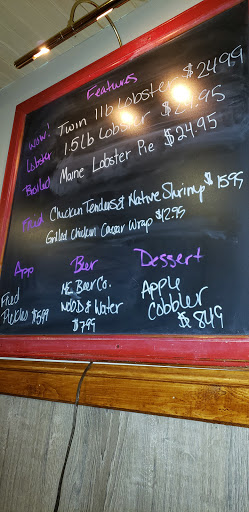 Features
Wow! Twin 1lb Lobster $24.99
Lobster 1.5lb Lobster $24.95
Broiled Maine Lobster Pie $24.95
Fried Chicken Tenders & Native Shrimp $15.95
Grilled Chicken Caesar Wrap $12.95
App
Fried
Pickles $5.99
Beer
ME. Beer Co.
WOOD & Water
$7.99
Dessert
Apple
Cobbler
$8.49